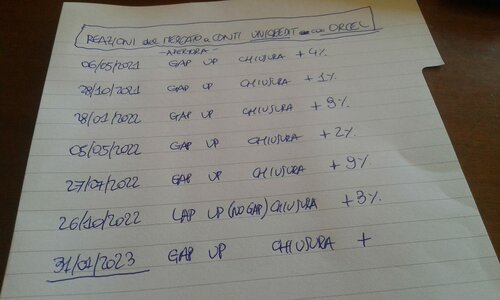 REAZIONI del MERCATO a CONTI UNICREDIT con ORCEL
- APERTURA -
06/05/2021 GAP UP CHIUSURA + 4%
28/10/2021 GAP UP CHIUSURA + 1%
28/01/2022 GAP UP CHIUSURA + 9%
05/05/2022 GAP UP CHIUSURA + 2%
27/07/2022 GAP UP CHIUSURA + 9%
26/10/2022 LAP UP (NO GAP) CHIUSURA + 3%
31/01/2023 GAP UP CHIUSURA +